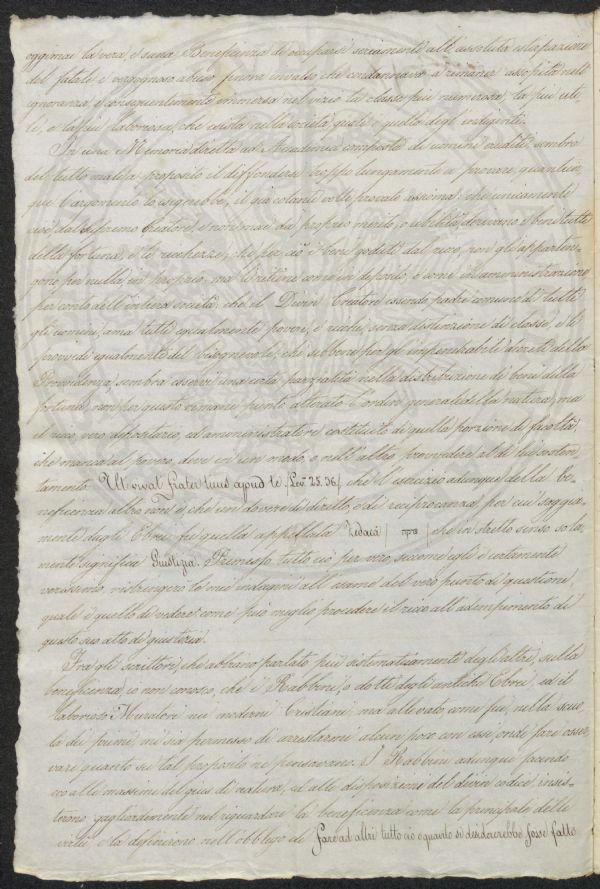 oggimai la vera, e sana Beneficenza di occuparsi seriamente all'assoluta estirpazione
del fatale e vergognoso abuso finora invalso che condannava a rimaner assopita nell'
ignoranza e conseguentemente immersa nel vizio la classe più numerosa, la più uti-
le, e la più laboriosa, che esista nella società, quale è quella degli indigenti.
In una Memoria diretta ad Accademia composta di uomini eruditi, sembra
del tutto mal a proposito il diffondersi troppo lungamente a provare, quantun-
que l'argomento lo esigerebbe, il già cotante volte provato assioma: che unicamente
cioè dal Supremo Creatore, e non mai da proprio merito, o abilità derivano i beni tutti
della fortuna, e le ricchezze; che per ciò i beni goduti dal ricco, non gli apparten-
gono per nulla in proprio, ma li ritiene come in deposito, e come in amministrazione
per conto dell'intera società; che il Divin Creatore essendo padre comune di tutti
gli uomini, ama tutti egualmente poveri, e ricchi, senza distinzione di classe, e li
provvede egualmente del bisognevole; che sebbene per gl'imperscrutabili decreti della
Provvidenza sembra esservi una certa parzialità nella distribuzione di beni della
fortuna, non per questo rimane punto alterato l'ordine generale della natura; ma
il ricco, vero depositario, ed amministratore costituito di quella porzione di facoltà,
che manca al povero, deve in un modo, o nell'altro, provvedere al di lui sosten-
tamento Ut vivat frater tuus apud te /Lev. 25. 36/ che l'esercizio adunque della be-
neficenza altro non è, che un dovere di diritto, e di reciprocanza, per cui saggia-
mente dagli Ebrei fu quella appellata Zedacà / צדקה / che in stretto senso sola-
mente significa Giustizia. Premesso tutto ciò per vero, siccome egli è certamente
verissimo, restringerò le mie indagini all'esame del vero punto di questione,
quale è quello di vedere: come può meglio procedere il ricco all'adempimento di
questo suo atto di giustizia.
Fra gli scrittori, che abbiano parlato più sistematicamente degli altri, sulla
beneficenza, io non conosco, che i Rabbini, o dotti degli antichi Ebrei, ed il
laborioso Muratori nei moderni Cristiani; ma allevato, come fui, nella scuo-
la dei primi, mi sia permesso di arrestarmi alcun poco con essi, onde fare osser-
vare quanto su tal proposito ne pensavano. I Rabbini adunque facendo
eco alle massime del gius di natura, ed alle disposizioni del divin codice, insis-
terono gagliardamente nel riguardare la beneficenza come la principale delle
virtù, e la definirono nell'obbligo di fare ad altri tutto ciò e quanto si desidererebbe fosse fatto